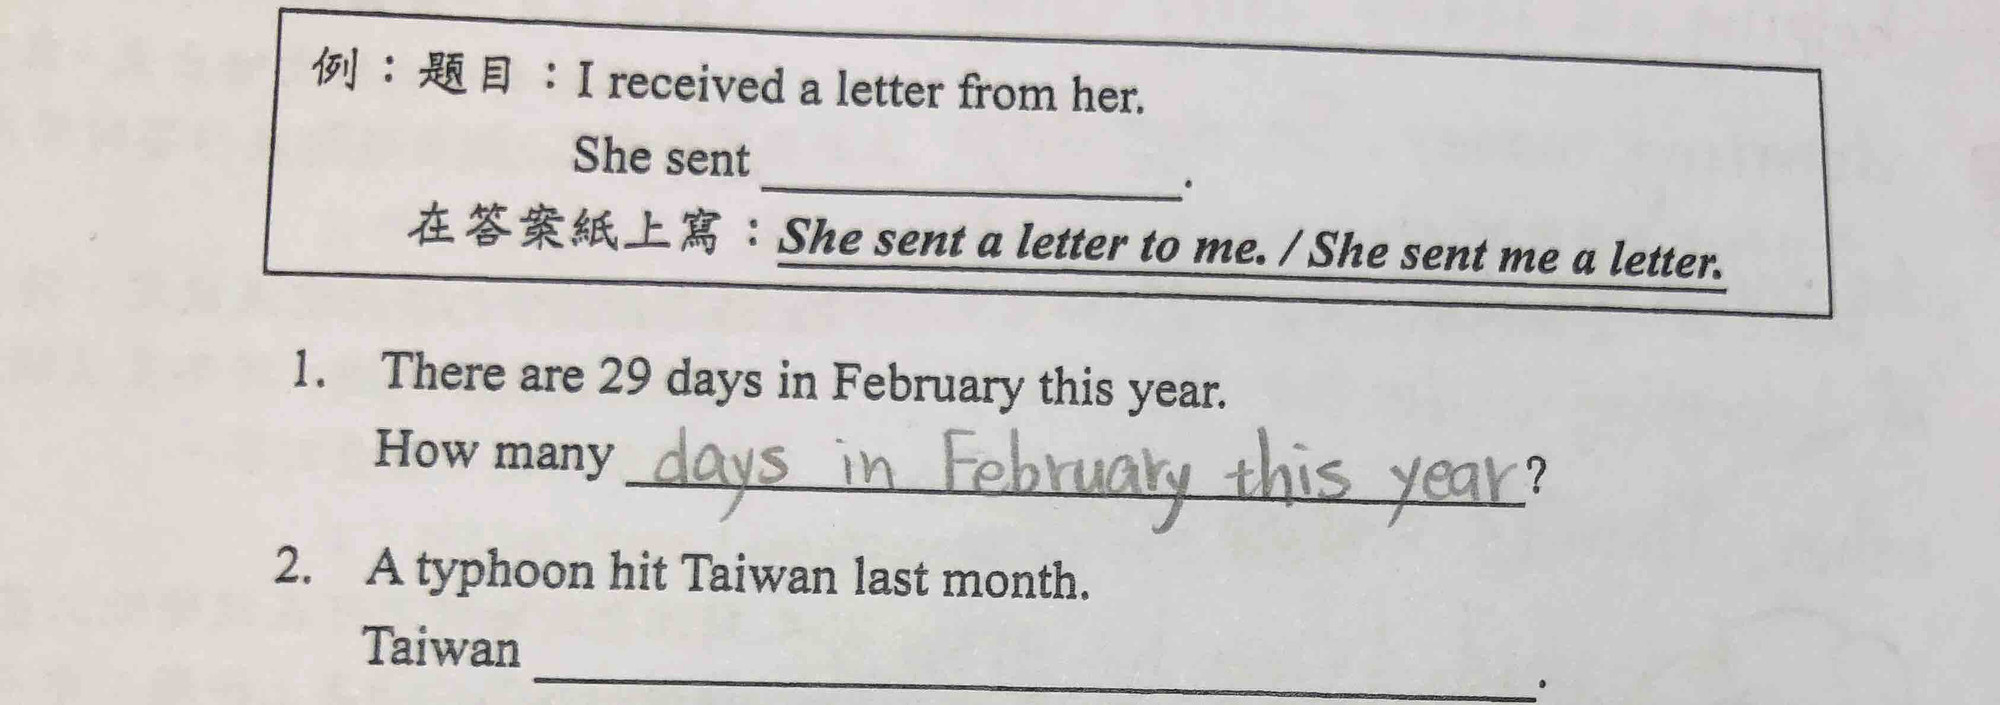 例：題目：I received a letter from her.
She sent ____________.
在答案紙上寫：She sent a letter to me. / She sent me a letter.
1. There are 29 days in February this year.
How many days in February this year?
2. A typhoon hit Taiwan last month.
Taiwan ____________.